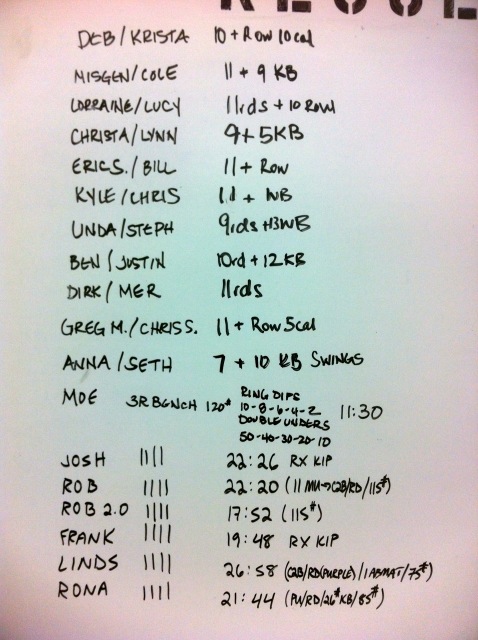 DEB/KRISTA 10 + Row 10 cal
MISGEN/COLE 11 + 9 KB
LORRAINE/LUCY 11rds + 10 Row
CHRISTA/LYNN 9 + 5KB
ERIC S./BILL 11 + Row
KYLE/CHRIS 11 + WB
LINDA/STEPH 9rds +13WB
BEN/JUSTIN 10rd + 12KB
DIRK/MER 11rds
GREG M./CHRIS S. 11 + Row 5cal
ANNA/SETH 7 + 10 KB SWINGS
MOE 3R BENCH 120# RING DIPS
10-8-6-4-2 11:30
DOUBLE UNDERS
50-40-30-20-10
JOSH |||| 22:26 RX KIP
ROB |||| 22:20 (11 MU→C2B/RD/115#)
ROB 2.0 |||| 17:52 (115#)
FRANK |||| 19:48 RX KIP
LINDS |||| 26:58 (C2B/RD(PURPLE)/1 ABMAT/75#)
RONA |||| 21:44 (PU/RD/26#KB/85#)